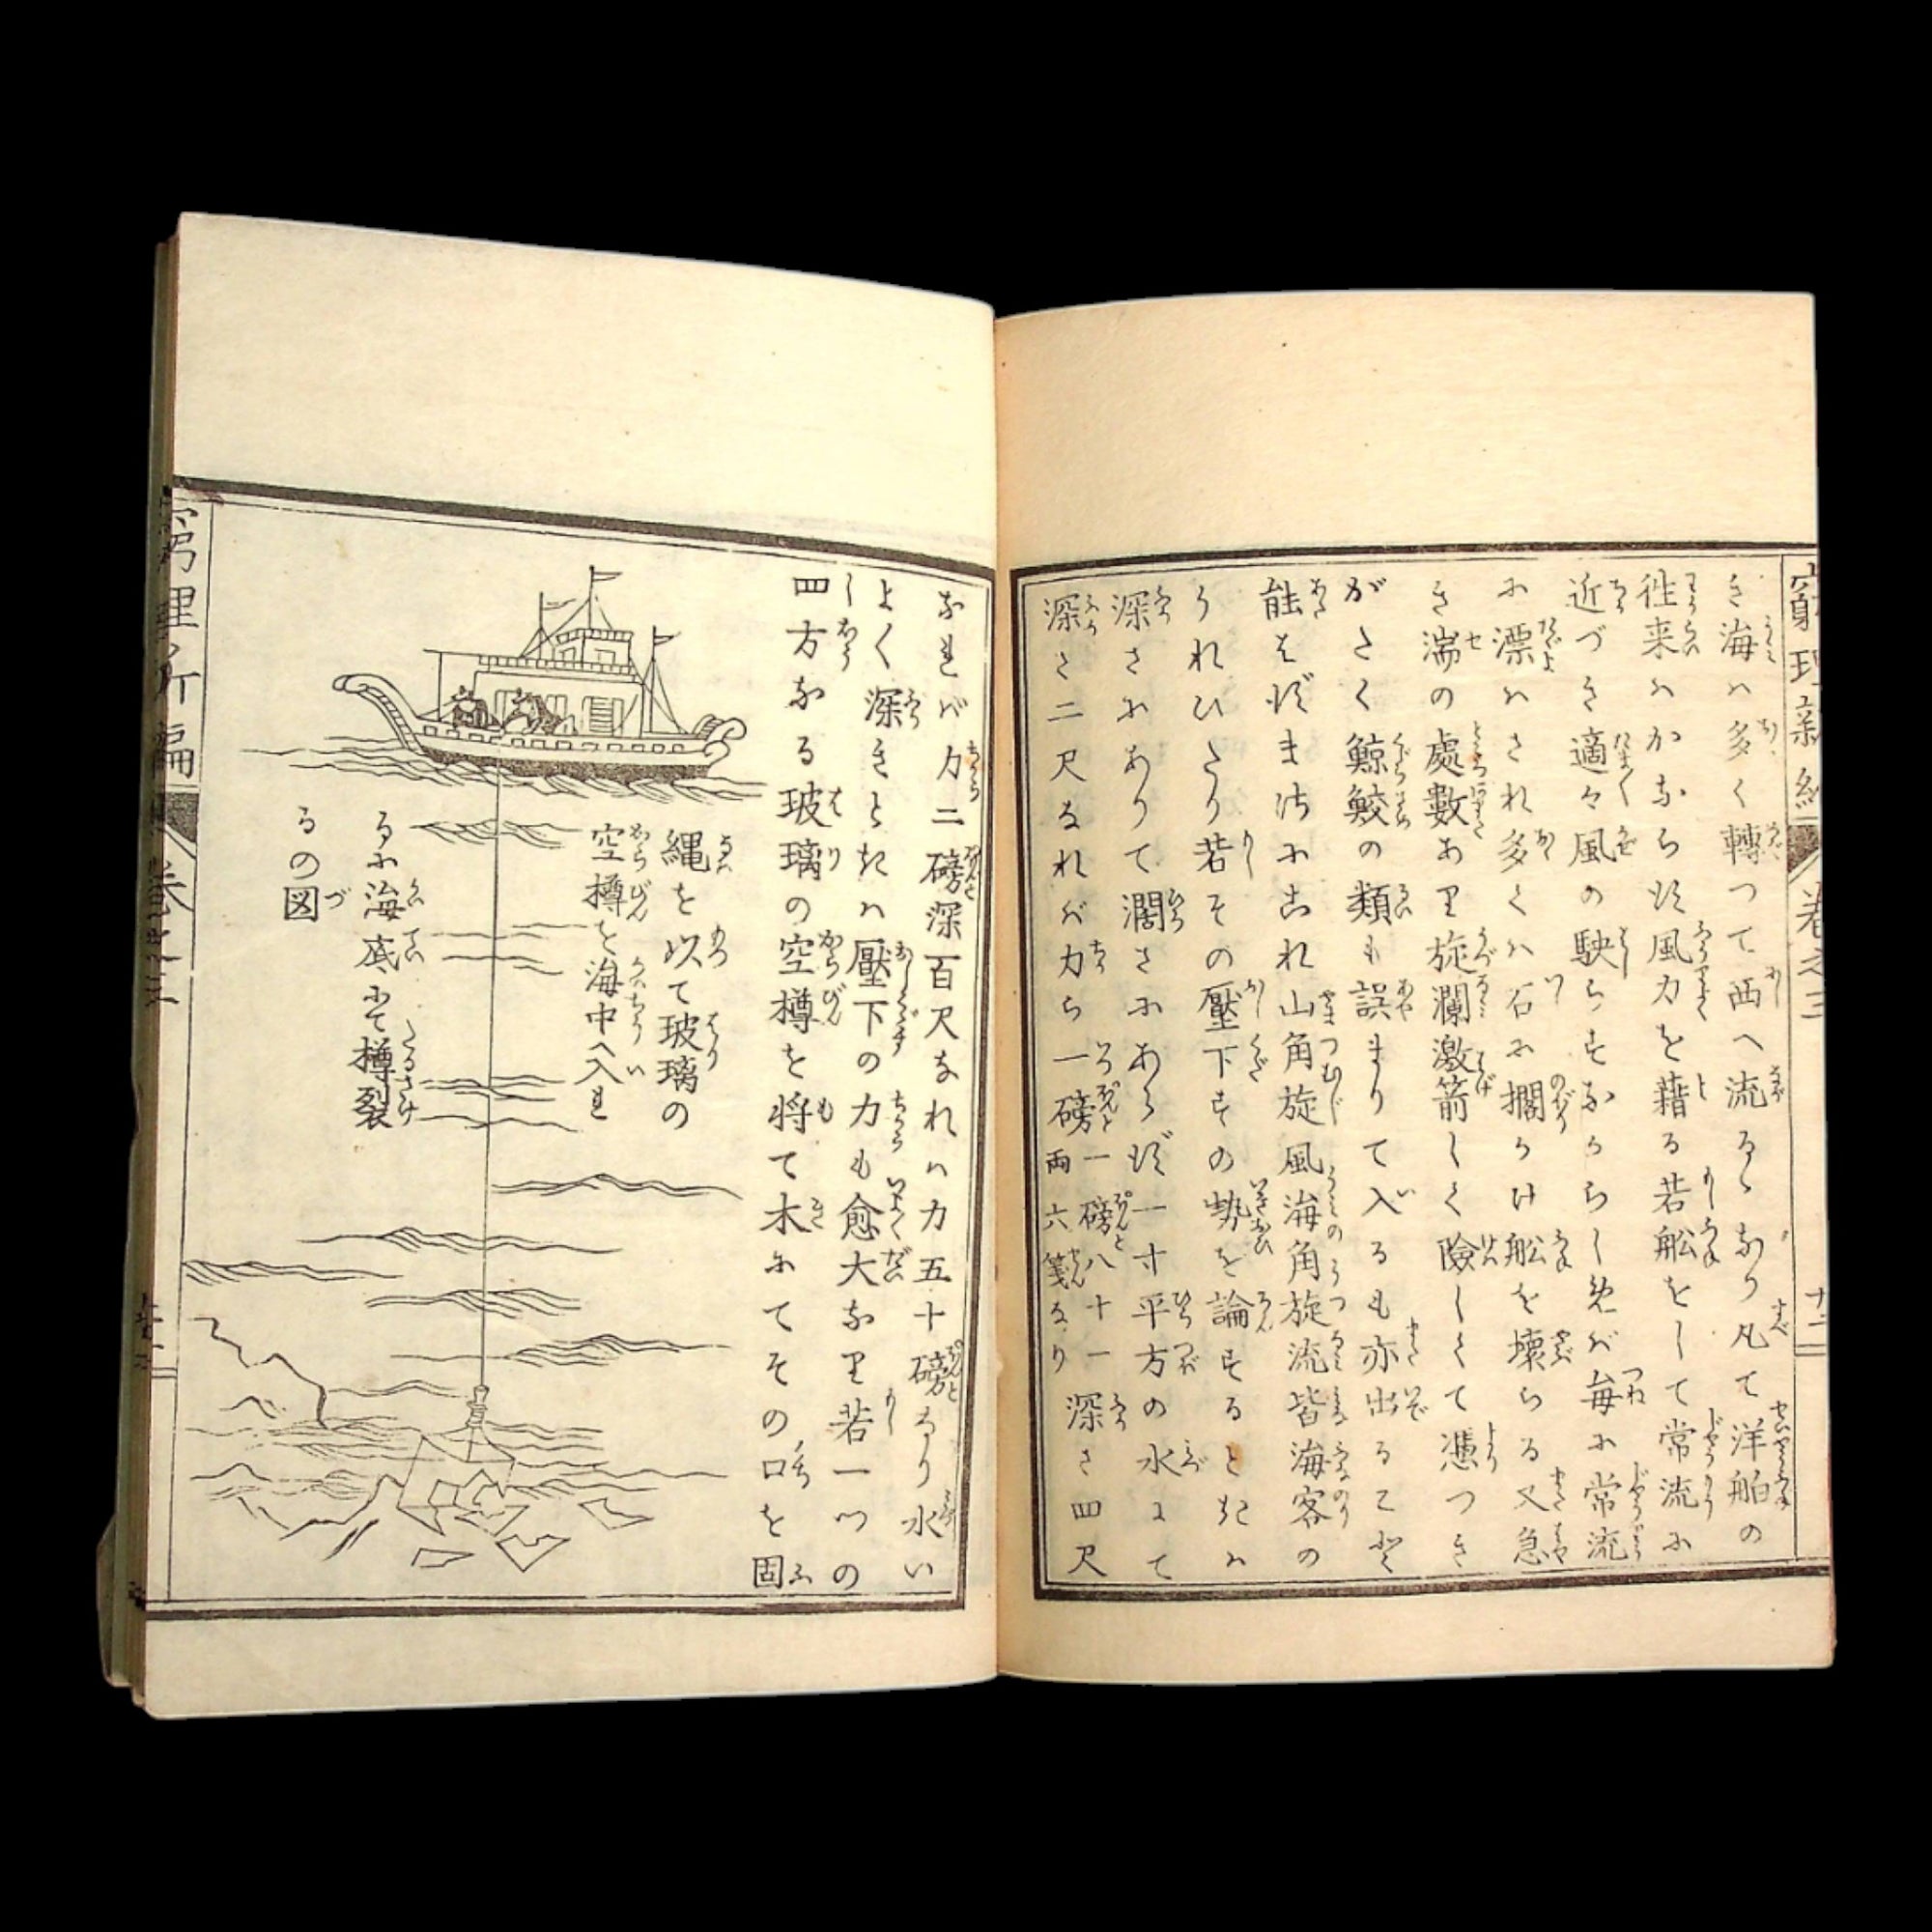 窮理新編
巻之三
十二
き海ハ多く轉つて西へ流るゝなり凡て洋舶の
徃来ハかならず風力を藉る若舩をして常流に
近づき適々風の駛らすなからしめバ毎に常流
に漂ハされ多くハ石に擱り此舩を壊らる又急
き湍の處數あり旋瀾激箭しく險しくて憑つき
がたく鯨鮫の類も誤まりて入るも亦出ること
能はずまけにこれ山角旋風海角旋流皆海客の
うれひたり若その壓下すの㔟を論ずるときハ
深さにありて濶さにあらず一寸平方の水にて
深さ二尺なれバ力ら一磅一磅八十一両六箋なり深さ四尺
なれバ力二磅深百尺なれハ力五十磅なり水い
よく深きときハ壓下の力も愈大なり若一つの
四方なる玻璃の空樽を将て木にてその口を固
縄を以て玻璃の
空樽を海中へ入れ
るに海底にて樽裂
るの図
窮理新編
巻之三